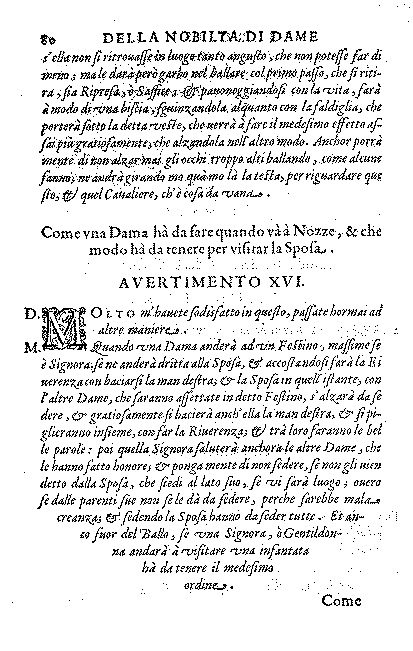 80 DELLA NOBILTA DI DAME
s'ella non si ritrouasse in luogo tanto angusto, che non potesse far di
meno; ma le darà però garbo nel ballare col primo passo, che si riti-
ra, sia Ripresa, ò Saffice; & pauoneggiandosi con la vita, farà
à modo di vna biscia, sguinzandola alquanto con la faldiglia, che
porterà sotto la detta veste, che verrà à fare il medesimo effetto as-
sai più gratiosamente, che alzandola nell'altro modo. Anchor porrà
mente di non alzar mai gli occhi troppo alti ballando, come alcune
fanno; ne andrà girando mo quà mo là la testa, per riguardare que
sto, & quel Caualiere, ch'è cosa da vana.
Come vna Dama hà da fare quando và à Nozze, & che
modo hà da tenere per visitar la Sposa.
AVERTIMENTO XVI.
D. MOLTO m'hauete sodisfatto in questo, passate hormai ad
altre maniere.
M. Quando vna Dama anderà ad vn Festino, massime se
è Signora: se ne anderà dritta alla Sposa, & accostandosi farà la Ri
uerenza con baciarsi la man destra; & la Sposa in quell'istante, con
l'altre Dame, che saranno assettate in detto Festino, s'alzarà da se
dere, & gratiosamente si bacierà anch'ella la man destra, & si pi-
glieranno insieme, con far la Riuerenza; & trà loro faranno le bel
le parole: poi quella Signora saluterà anchora le altre Dame, che
le hanno fatto honore; & ponga mente di non sedere, se non gli uien
detto dalla Sposa, che siedi al lato suo, se vi sarà luogo; ouero
se dalle parenti sue non se le dà da sedere, perche sarebbe mala
creanza; & sedendo la Sposa hanno da seder tutte. Et an-
co fuor del Ballo, se vna Signora, ò Gentildon-
na andarà à visitare vna infantata
hà da tenere il medesimo
ordine.
Come